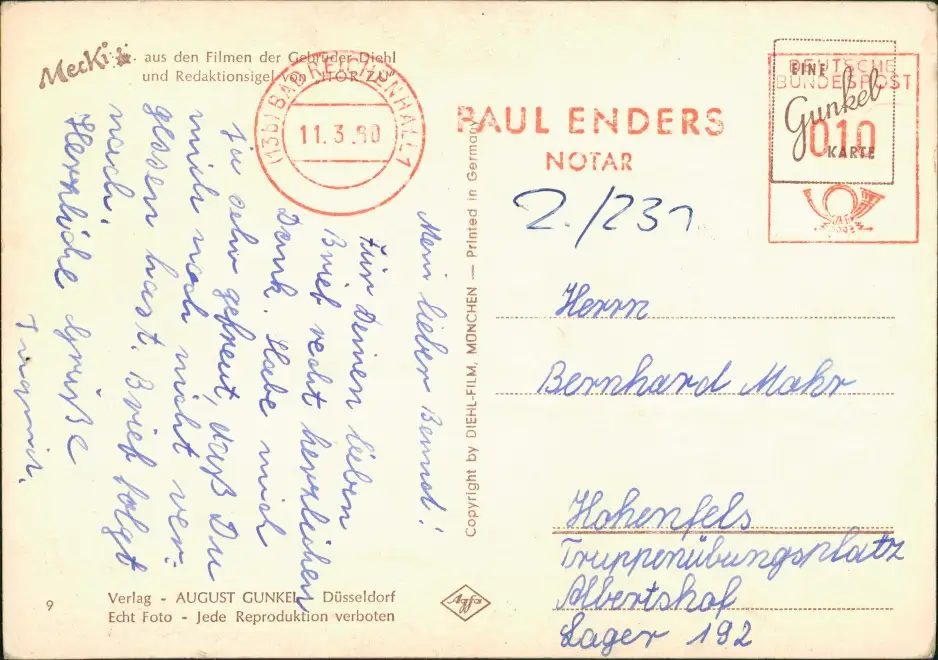 Mecki
aus den Filmen der Gebrüder Diehl
und Redaktionsigel von "HÖR ZU"
(13b) BAD REICHENHALL 1
11.3.60
PAUL ENDERS
NOTAR
DEUTSCHE
BUNDESPOST
010
EINE
Gunkel
KARTE
2./231
Mein lieber Bernd!
Für Deinen lieben
Brief recht herzlichen
Dank. Habe mich
ja sehr gefreut, daß Du
mich noch nicht ver-
gessen hast. Brief folgt
nach.
Herzliche Grüße
Copyright by DIEHL-FILM, MÜNCHEN — Printed in Germany
Herrn
Bernhard Mohr
Hohenfels
Truppenübungsplatz
Albertshof
Lager 192
9
Verlag - AUGUST GUNKEL - Düsseldorf
Echt Foto - Jede Reproduktion verboten
Agfa